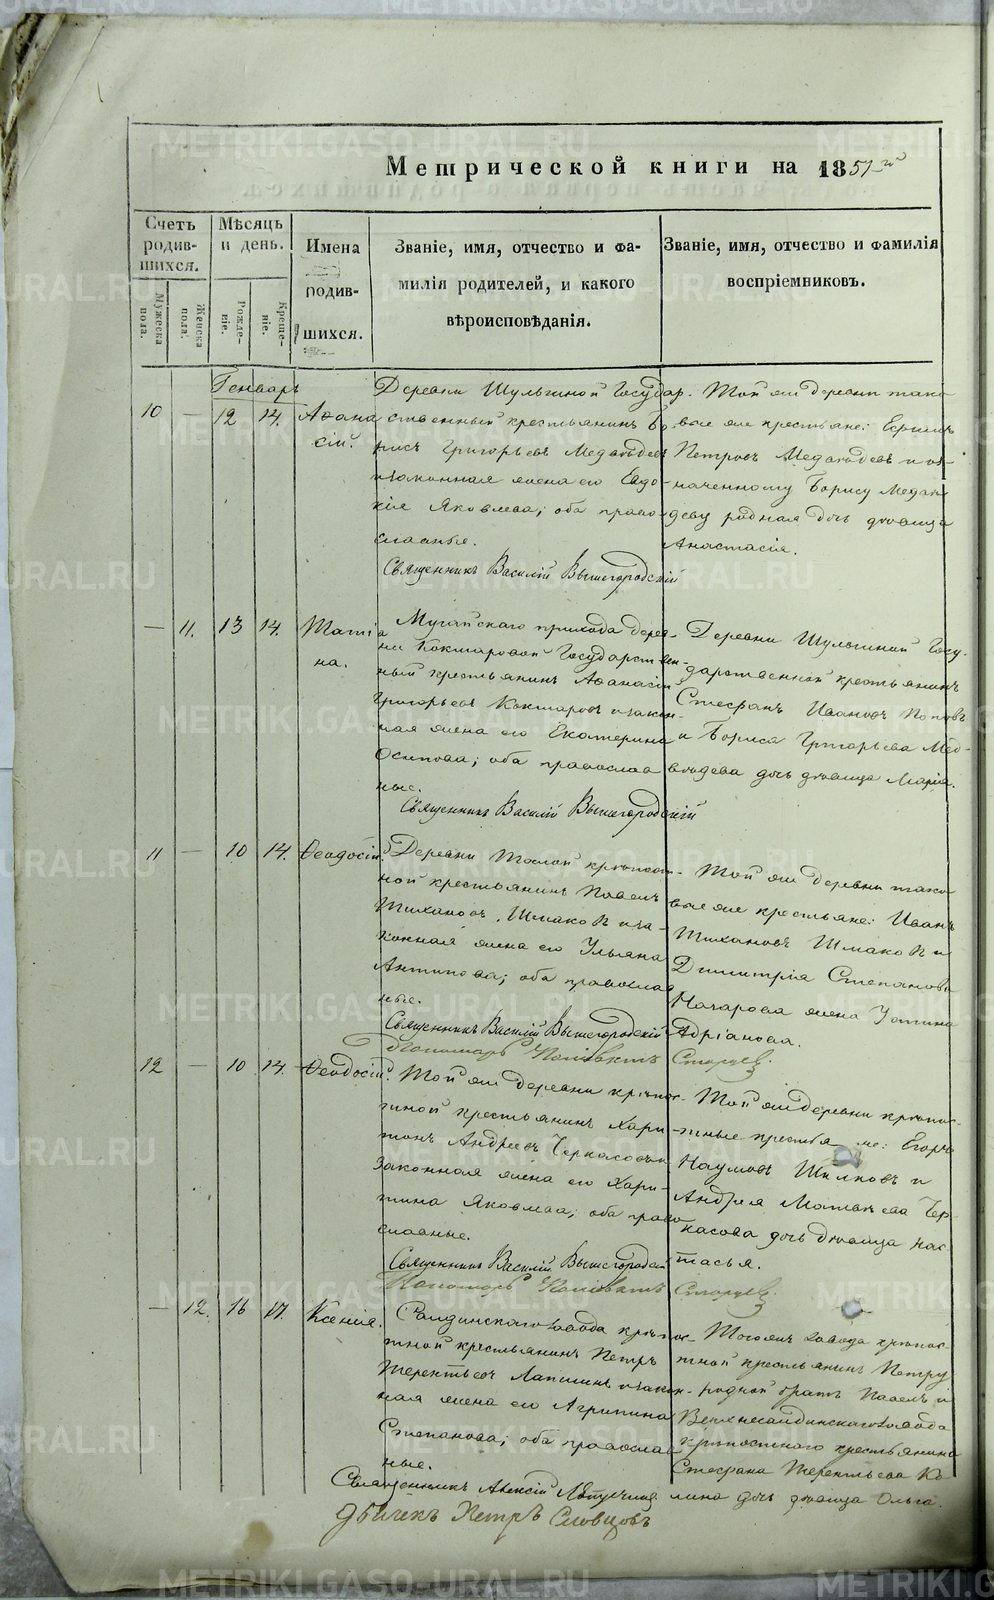 Метрической книги на 1851й
Счетъ родив-шихся.
Мѣсяцъ и день.
Имена родив-шихся.
Званіе, имя, отчество и фа-
милія родителей, и какого
вѣроисповѣданія.
Званіе, имя, отчество и фамилія
воспріемниковъ.
Мужеска пола.
Женска пола.
Рожде-ніе.
Креще-ніе.
Генварь
10 — 12 14. Аѳана
сій.
Деревни Шульгиной Государ-
ственный крестьянинъ Бо
рисъ Григорьевъ Медвѣдевъ
и законная жена его Евдо-
кія Яковлева; оба право-
славные.
Священникъ Василій Вышегородскій
Той же деревни тако
вые же крестьяне:
Петровъ Медвѣдевъ и оз-
наченному Борису Медвѣ
деву родная дочь дѣвица
Анастасія.
— 11. 13 14. Татіа
на.
Мугайскаго прихода дерев-
ни Кокшаровой Государствен-
ный крестьянинъ Аѳанасій
Григорьевъ Кокшаровъ и закон-
ная жена его Екатерина
Осипова; оба православ
ные.
Священникъ Василій Вышегородскій
Деревни Шульгиной Госу-
дарственной крестьянинъ
Стефанъ Ивановъ Поповъ
и Бориса Григорьева Мед-
вѣдева дочь дѣвица Марія.
11 — 10 14. Ѳеодосій.
Деревни Толой крѣпост-
ной крестьянинъ Павелъ
Тихановъ Шмаковъ и за-
конная жена его Ульяна
Антипова; оба православ
ные.
Священникъ Василій Вышегородскій
Пономарь Поліевктъ Старцев.
Той же деревни тако
вые же крестьяне: Иванъ
Тихановъ Шмаковъ и
Димитрія Степанова
Начарова жена Устина
Адріанова.
12 — 10 14. Ѳеодосій.
Той же деревни крѣпос-
тной крестьянинъ Хари-
тонъ Андреевъ Черкасовъ и
законная жена его Хари-
тина Яковлева; оба право
славные.
Священникъ Василій Вышегородскій
Пономарь Поліевктъ Старцев.
Той же деревни крѣпос-
тные крестьяне: Егоръ
Наумовъ Шилковъ и
Андрея Матвѣева Чер-
касова дочь дѣвица Нас-
тасья.
— 12. 16 17. Ксенія.
Салдинскаго завода крѣпос-
тной крестьянинъ Петръ
Терентьевъ Лапшинъ и закон-
ная жена его Агрипина
Степанова; оба православ
ные.
Священникъ Алексій
Дьячекъ Петръ Словцовъ
Тогожъ завода крѣпос-
тной крестьянинъ Петру
родной братъ Павелъ и
Верхнесалдинскаго завода
крѣпостнаго крестьянина
Стефана Терентьева Ко
лина дочь дѣвица Ольга.
METRIKI.GASO-URAL.RU